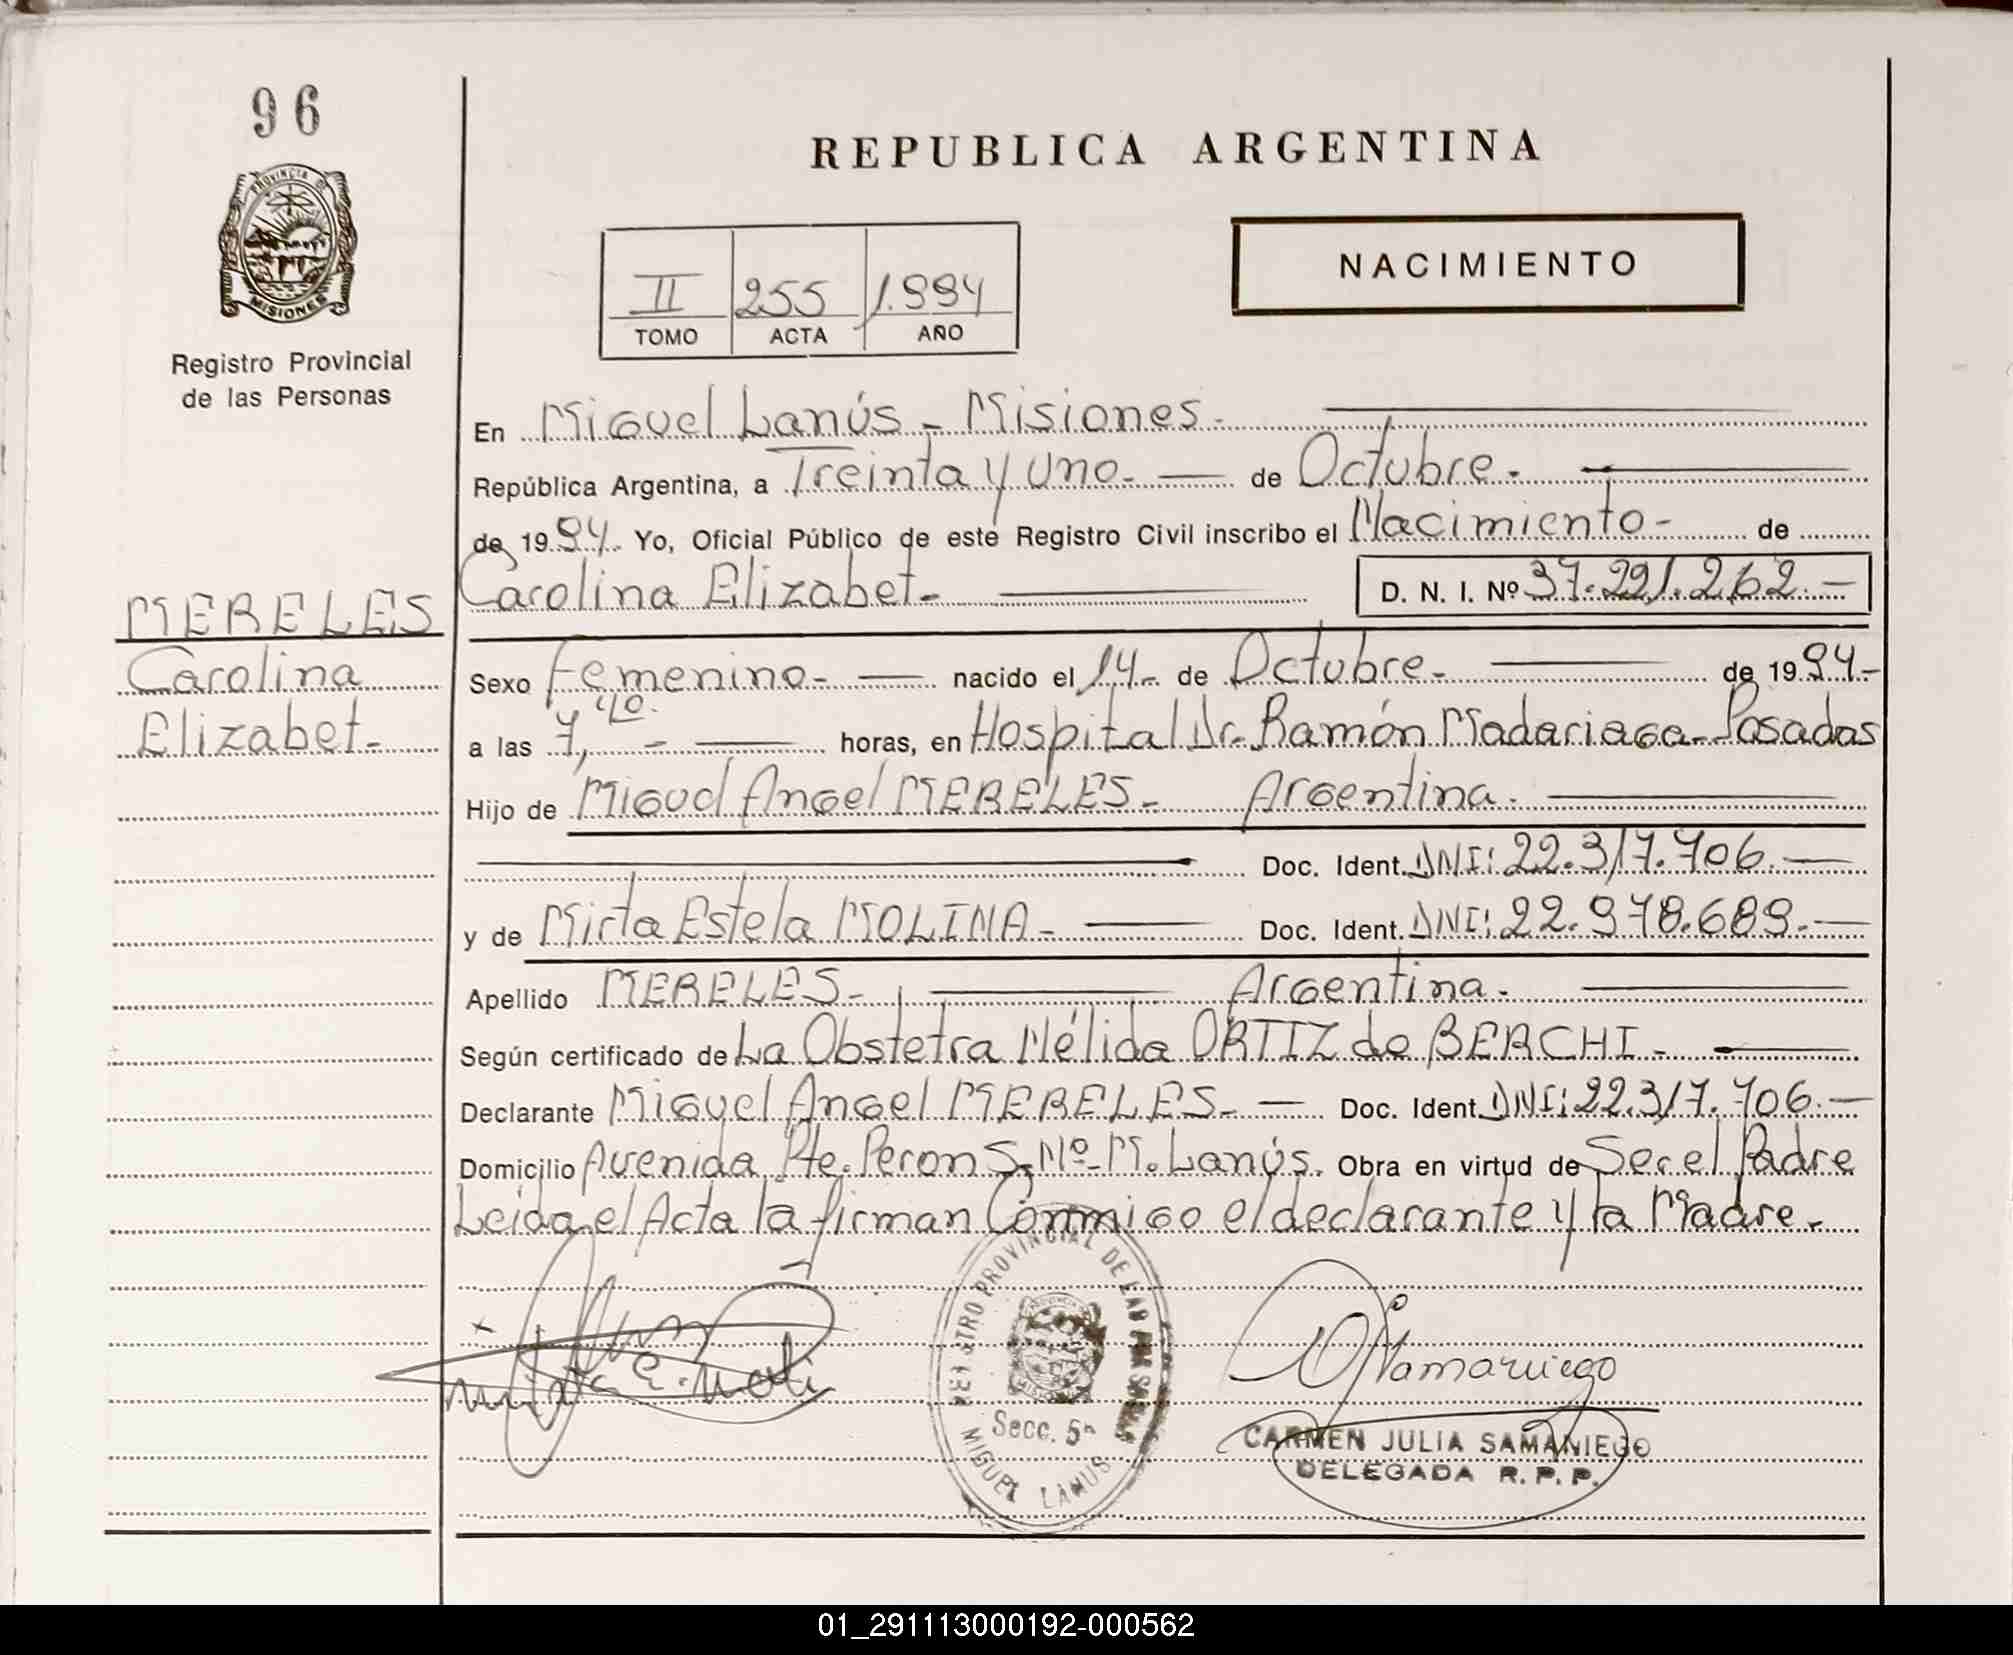 96
PROVINCIA D
MISIONES
Registro Provincial
de las Personas
REPUBLICA ARGENTINA
NACIMIENTO
II 255 1.994
TOMO ACTA AÑO
En Miguel Lanús - Misiones.
República Argentina, a Treinta y Uno.- de Octubre.-
de 1994. Yo, Oficial Público de este Registro Civil inscribo el Nacimiento- de
Carolina Elizabet.- D. N. I. Nº 37.221.262.-
MERELES
Carolina
Elizabet.-
Sexo Femenino- nacido el 14.- de Octubre.- de 1994.-
a las 7, horas, en Hospital Dr. Ramón Madariaga - Posadas
Hijo de Miguel Angel MERELES.- Argentina.
Doc. Ident. DNI: 22.317.706.-
y de Mirta Estela MOLINA- Doc. Ident. DNI: 22.978.689.-
Apellido MERELES.- Argentina.
Según certificado de La Obstetra Nélida ORTIZ de BERCHI.-
Declarante Miguel Angel MERELES.- Doc. Ident. DNI: 22.317.706.-
Domicilio Avenida Pte. Peron S. Nº-M. Lanús. Obra en virtud de Ser el Padre
Leida el Acta la firman Conmigo el declarante y la Madre.
REGISTRO PROVINCIAL DE LAS PERSONAS
MISIONES
Secc. 5ª
MIGUEL LANUS
CARMEN JULIA SAMANIEGO
DELEGADA R. P. P.
01_291113000192-000562